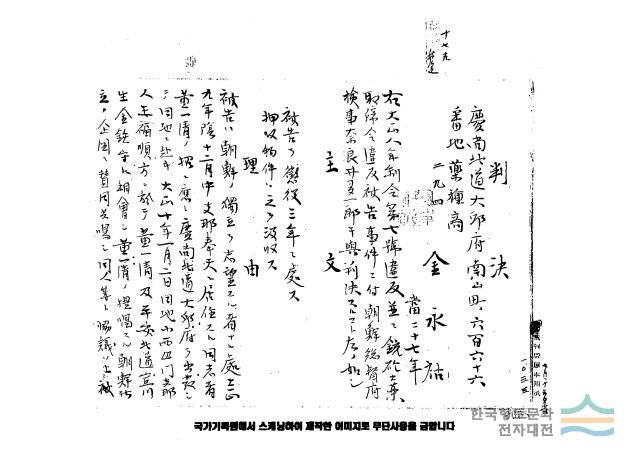 判決
慶尚北道大邱府南山町六百六十六
番地 藥種商
金永祐
當二十七年
右大正八年制令第七號違反並ニ銃砲火藥
取締令違反被告事件ニ付朝鮮總督府
檢事奈良井多一郎干與判決スルコト左ノ如シ
主文
被告ヲ懲役三年ニ處ス
押收物件ハ之ヲ沒收ス
理由
被告ハ朝鮮ノ獨立ヲ希望スル者ナル處大正
九年陰十二月中支那奉天ニ居住スル同志者
董一清ノ招ニ應シ慶尚北道大邱府ヲ出發シ
同地ニ赴キ大正十年一月二日同地小西四門支那
人王福順方ニ於テ董一清及平安北道宣川
生金鉄
ト相會シ董一清ノ提唱スル朝鮮
立ノ企圖ニ賛同共鳴シ同人等ト協議ノ上
한국향토문화
전자대전
국가기록원에서 스캐닝하여 제작한 이미지로 무단사용을 금합니다